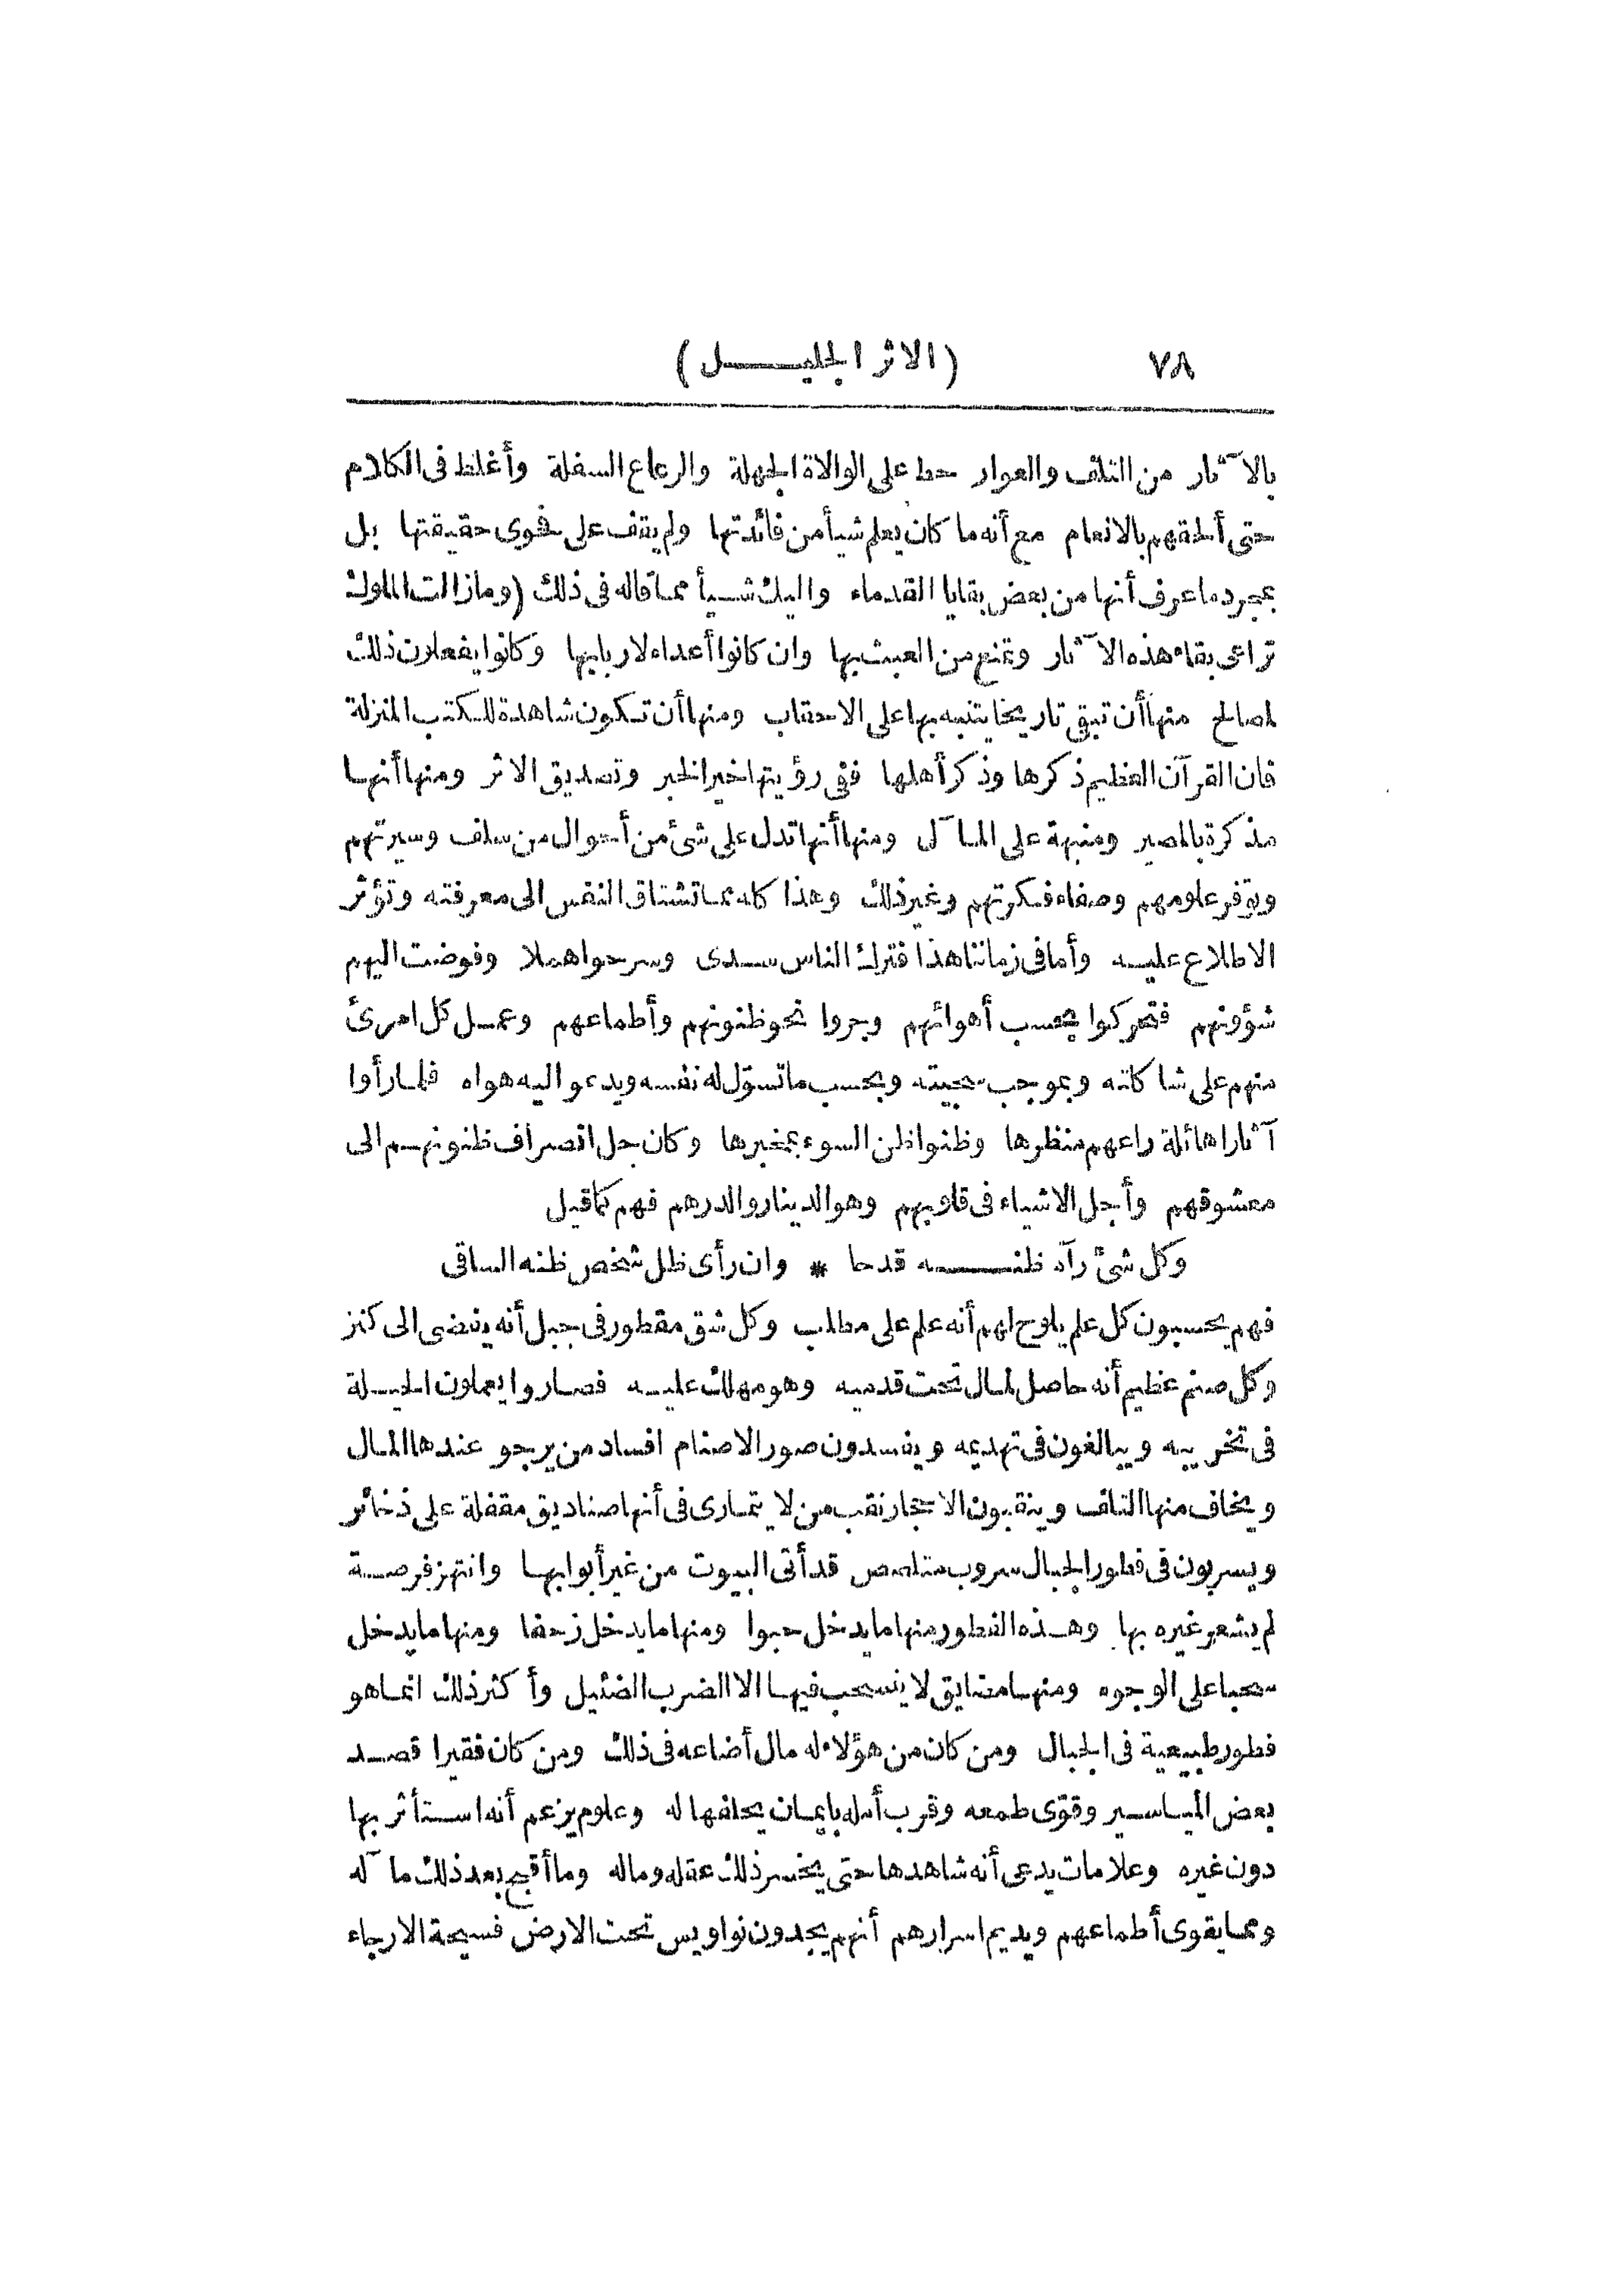 ٧٨ (الاثر الجليل)
بالآثار من التلف والعوار حط على الولاة الجهلة والرعاع السفلة وأغلظ فى الكلام
حتى ألحقهم بالانعام مع أنه ما كان يعلم شيأ من فائدتها ولم يقف على فحوى حقيقتها بل
بمجرد ما عرف أنها من بعض بقايا القدماء واليك شيأ مما قاله فى ذلك (ومازالت الملوك
تراعى بقاء هذه الآثار وتمنع من العبث بها وان كانوا أعداء لاربابها وكانوا يفعلون ذلك
لمصالح منها أن تبقى تاريخا يتنبه بها على الاحقاب ومنها أن تكون شاهدة للكتب المنزلة
فان القرآن العظيم ذكرها وذكر أهلها ففى رؤيتها خبر الخبر وتصديق الاثر ومنها أنها
مذكرة بالمصير ومنبهة على المآل ومنها أنها تدل على شئ من أحوال من سلف وسيرتهم
وتوفر علومهم وصفاء فكرتهم وغير ذلك وهذا كله مما تشتاق النفس الى معرفته وتؤثر
الاطلاع عليه وأما فى زماننا هذا فترك الناس سدى وسرحوا هملا وفوضت اليهم
شؤونهم فتحركوا بحسب أهوائهم وجروا نحو ظنونهم وأطماعهم وعمل كل امرئ
منهم على شاكلته وبموجب سجيته وبحسب ماتسوّل له نفسه ويدعو اليه هواه فلما رأوا
آثارا هائلة راعهم منظرها وظنوا ظن السوء بمخبرها وكان جل انصراف ظنونهم الى
معشوقهم وأجل الاشياء فى قلوبهم وهو الدينار والدرهم فهم كما قيل
وكل شئ رآه ظنه قدحا * وان رأى ظل شخص ظنه الساقى
فهم يحسبون كل علم يلوح لهم أنه علم على مطلب وكل شق مفطور فى جبل أنه يفضى الى كنز
وكل صنم عظيم أنه حاصل لمال تحت قدميه وهو مهلك عليه فصاروا يعملون الحيلة
فى تخريبه ويبالغون فى تهديمه ويفسدون صور الاصنام افساد من يرجو عندها المال
ويخاف منها التلف وينقبون الاحجار نقب من لا يتمارى فى أنها صناديق مقفلة على ذخائر
ويسربون فى فطور الجبال سروب متلصص قد أتى البيوت من غير أبوابها وانتهز فرصة
لم يشعر غيره بها وهذه الفطور منها ما يدخل حبوا ومنها ما يدخل زحفا ومنها ما يدخل
سحبا على الوجوه ومنها مضايق لا ينسحب فيها الا الضرب الضئيل وأكثر ذلك انما هو
فطور طبيعية فى الجبال ومن كان من هؤلاء له مال أضاعه فى ذلك ومن كان فقيرا قصد
بعض المياسير وقوّى طمعه وقرب أمله بايمان يحلفها له وعلوم يزعم أنه استأثر بها
دون غيره وعلامات يدعى أنه شاهدها حتى يخسر ذلك عقله وماله وما أقبح بعد ذلك مآله
ومما يقوى أطماعهم ويديم اسرارهم أنهم يجدون نواويس تحت الارض فسيحة الارجاء